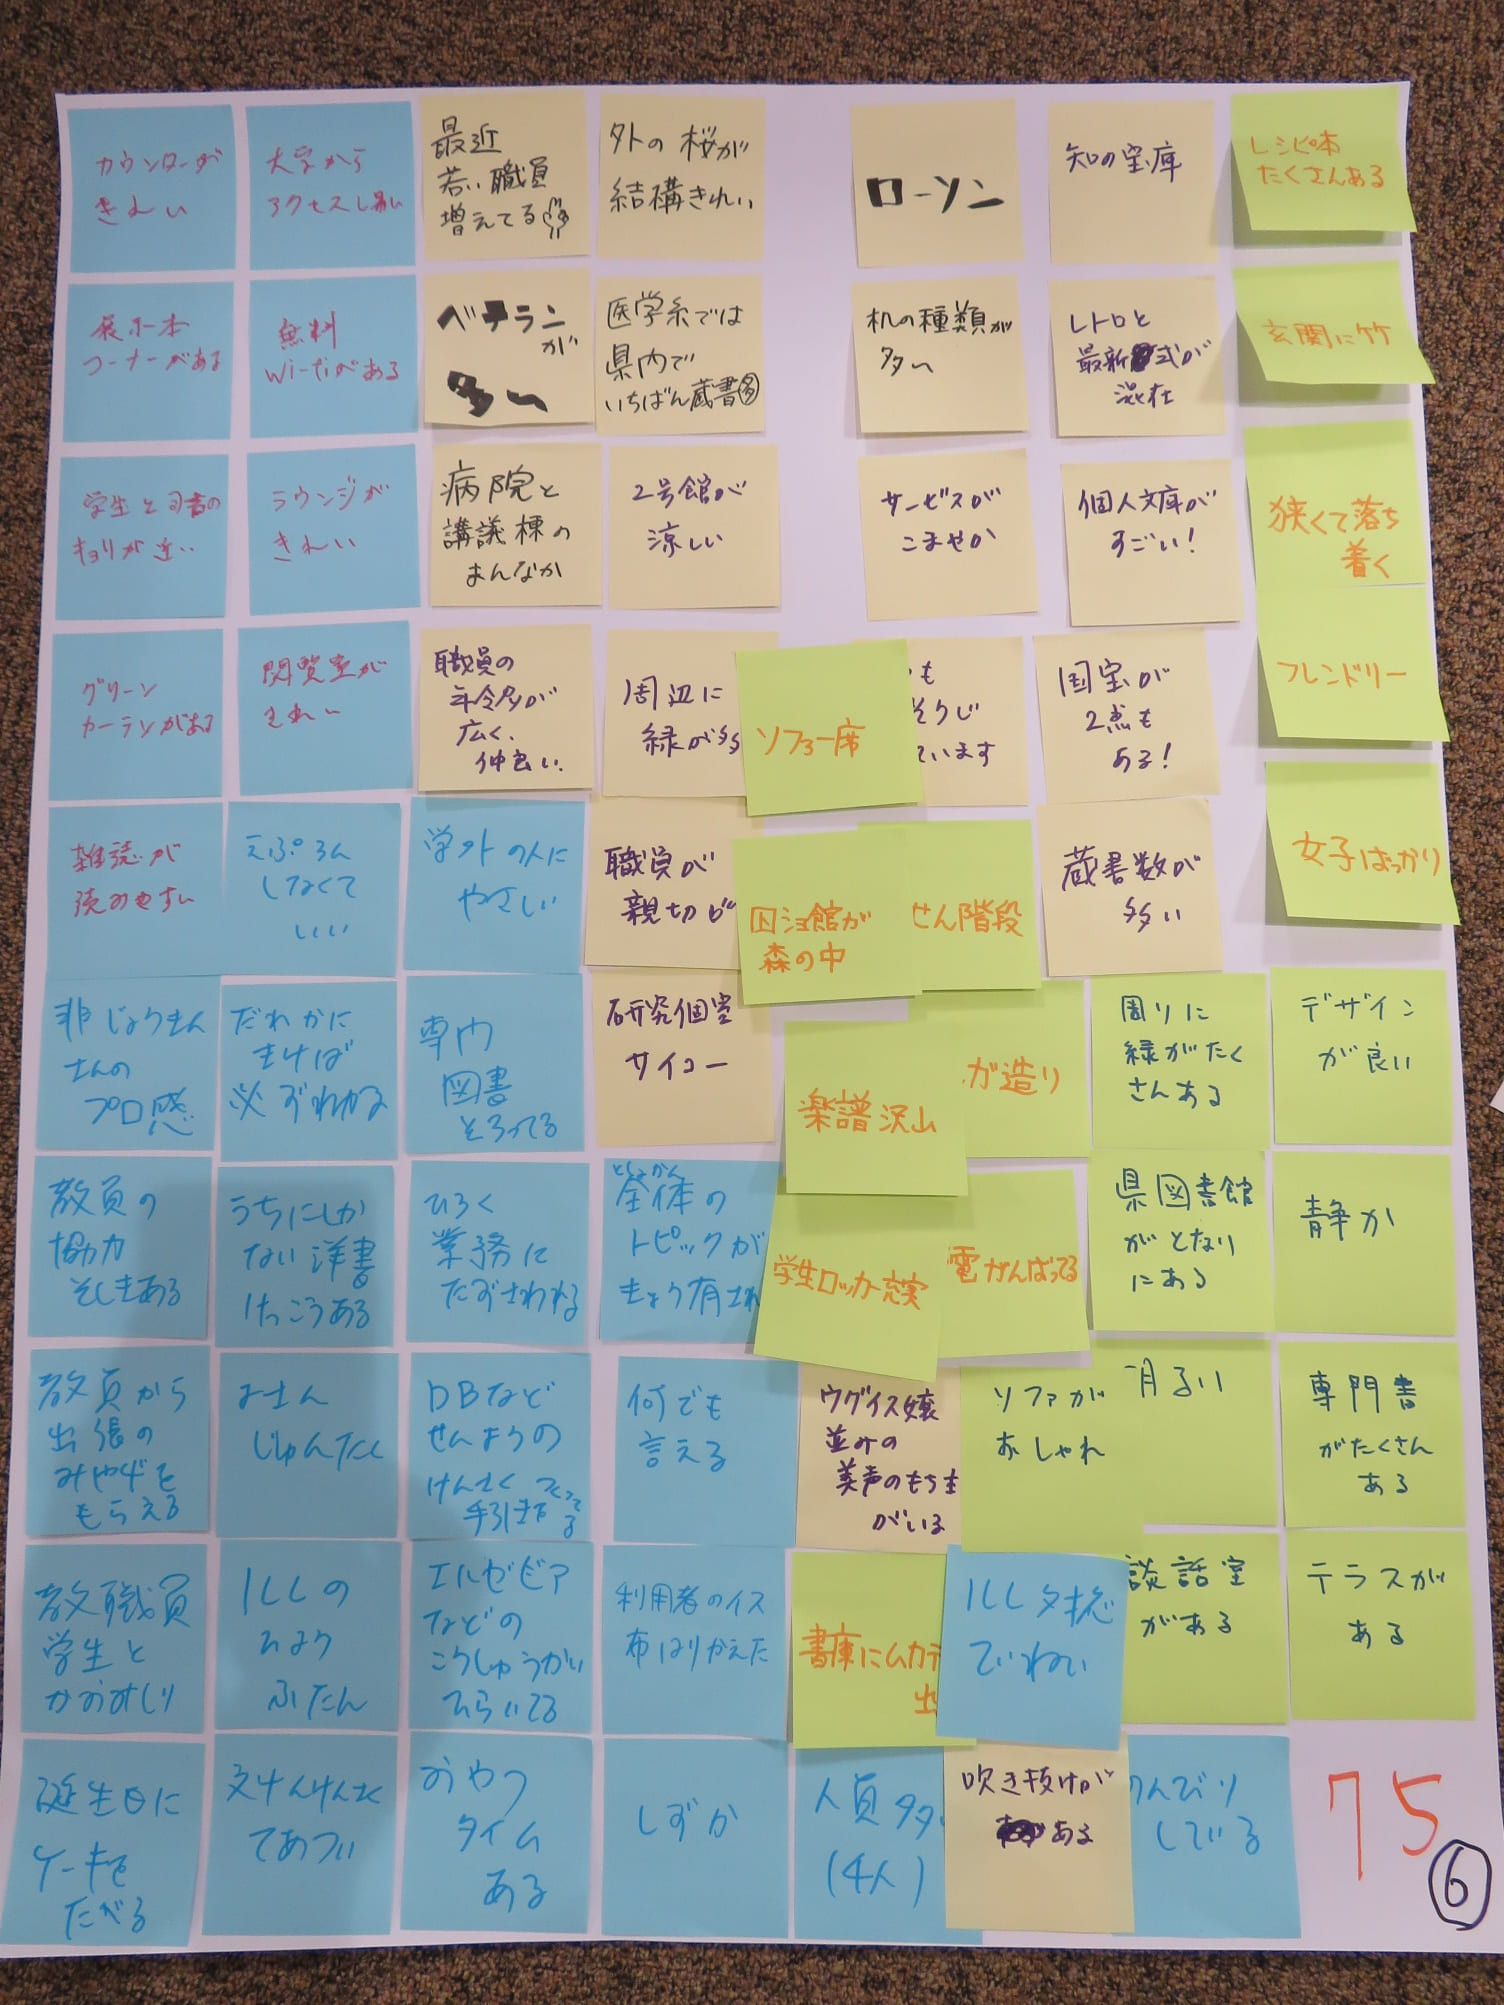 カウンターが
きれい
大学から
アクセスし易い
最近
若い職員
増えてる
外の桜が
結構きれい
ローソン
知の宝庫
レシピ本
たくさんある
展示本
コーナーがある
無料
Wi-fiがある
ベテランが
多い
医学系では
県内で
いちばん蔵書多
机の種類が
多い
レトロと
最新式が
混在
玄関に竹
学生と司書の
キョリが近い
ラウンジが
きれい
病院と
講議棟の
まんなか
2号館が
涼しい
サービスが
こまやか
個人文庫が
すごい!
狭くて落ち
着く
グリーン
カーテンがある
閲覧室が
きれい
職員の
年令多が
広く、
仲良い.
周辺に
緑が多
ソファー席
も
そうじ
ています
国宝が
2点も
ある!
フレンドリー
雑誌が
読みやすい
えぷろん
しなくて
いい
学外の人に
やさしい
職員が
親切で
図ショ館が
森の中
せん階段
蔵書数が
多い
女子ばっかり
非じょうきん
さんの
プロ感
だれかに
きけば
必ずわかる
専門
図書
そろってる
研究個室
サイコー
楽譜沢山
が造り
周りに
緑がたく
さんある
デザイン
が良い
教員の
協力
そしきある
うちにしか
ない洋書
けっこうある
ひろく
業務に
たずさわれる
としょかん
全体の
トピックが
きょう有され
学生ロッカー充実
電がんばってる
県図書館
がとなり
にある
静か
教員から
出張の
みやげを
もらえる
よさん
じゅんたく
DBなど
せんようの
けんさく
手引きつくってる
何でも
言える
ウグイス嬢
並みの
美声のもち主
がいる
ソファが
おしゃれ
明るい
専門書
がたくさん
ある
教職員
学生と
かおみしり
ILLの
ひよう
ふたん
エルゼビア
などの
こうしゅうかい
ひらいてる
利用者のイス
布はりかえた
書庫にムカデ
出
ILL文拡
ていねい
談話室
がある
テラスが
ある
誕生日に
ケーキを
たべる
文けんけんさく
てあつい
おやつ
タイム
ある
しずか
人員多
(4人)
吹き抜けが
ある
のんびり
している
75
⑥